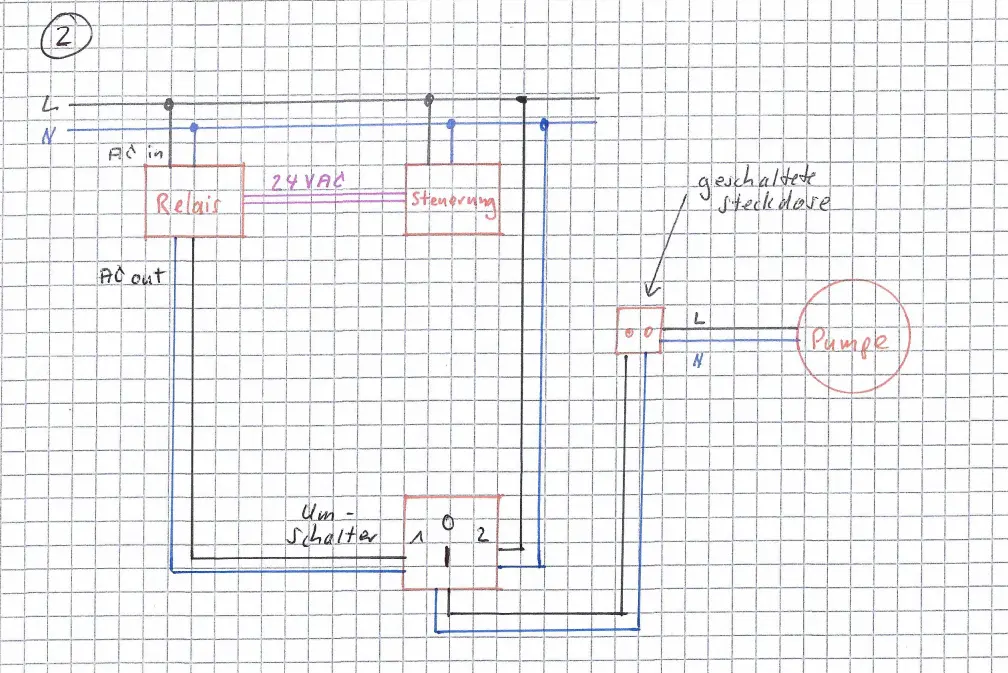 2
L
N
AC in
24 VAC
Relais
Steuerung
geschaltete
steckdose
AC out
L
N
Pumpe
Um-
schalter
0
1
2